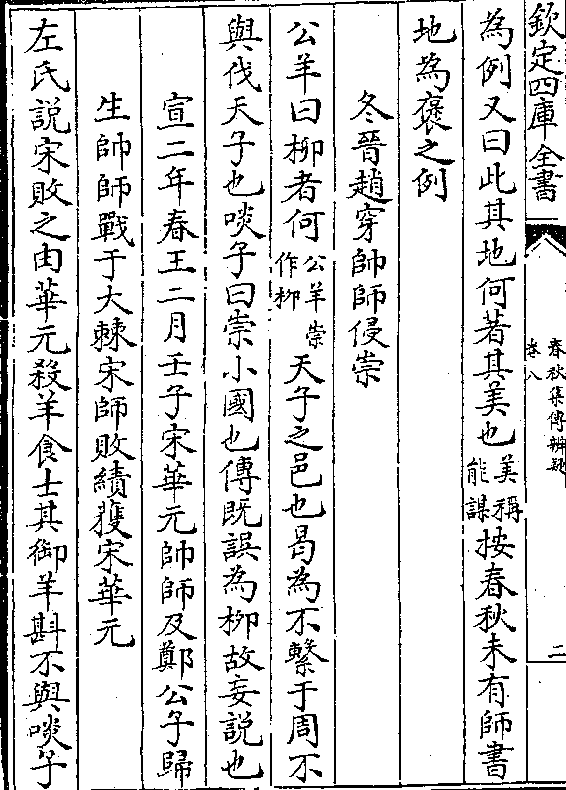 欽定四庫全書
春秋集傳辨疑
卷八
二
為例又曰此其地何著其美也美稱能謀按春秋未有師書
地為褒之例
冬晉趙穿帥師侵崇
公羊曰柳者何公羊崇作柳天子之邑也曷為不繫于周不
與伐天子也啖子曰崇小國也傳既誤為柳故妄說也
宣二年春王二月壬子宋華元帥師及鄭公子歸
生帥師戰于大棘宋師敗績獲宋華元
左氏說宋敗之由華元殺羊食士其御羊斟不與啖子